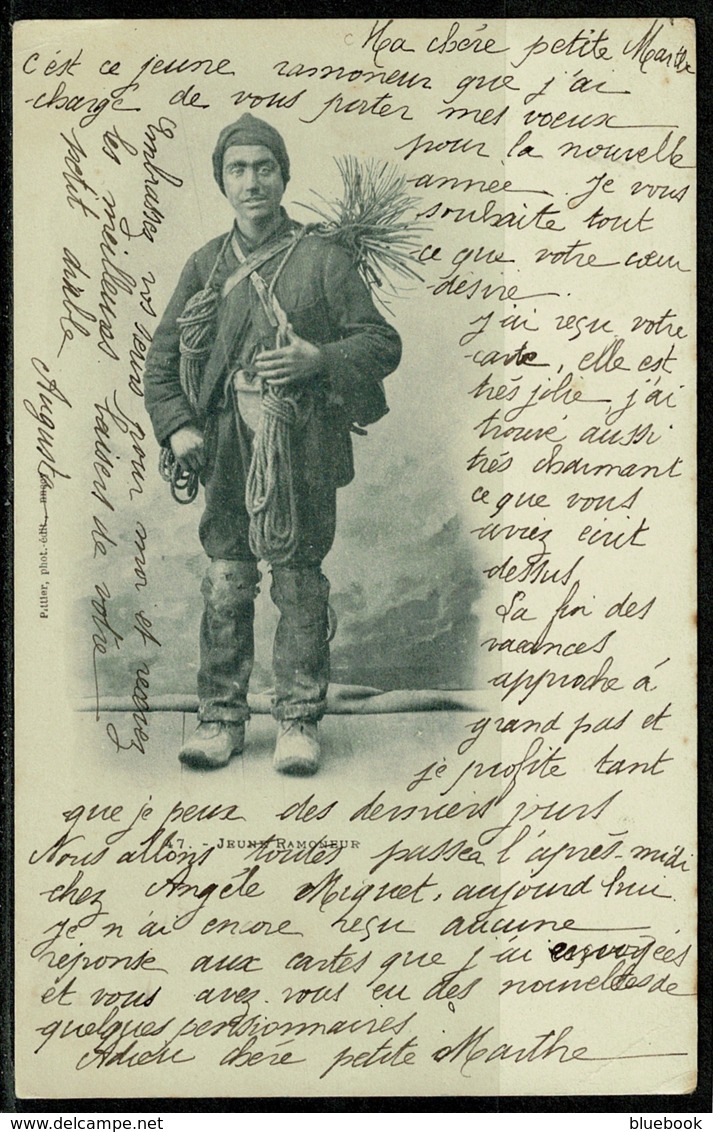 Ma chère petite Marthe
c'est ce jeune ramoneur que j'ai
chargé de vous porter mes voeux
pour la nouvelle
année. Je vous
souhaite tout
ce que votre coeur
désire.
J'ai reçu votre
carte, elle est
très jolie, j'ai
trouvé aussi
très charmant
ce que vous
aviez écrit
dessus
La fin des
vacances
approche à
grand pas et
je profite tant
que je peux des derniers jours
47. - JEUNE RAMONEUR
Nous allons toutes passer l'après-midi
chez Angèle Miquet, aujourd'hui.
Je n'ai encore reçu aucune
réponse aux cartes que j'ai envoyées
et vous avez-vous eu des nouvelles de
quelques pensionnaires
Adieu chère petite Marthe
Embrassez vos soeurs pour moi et recevez
les meilleurs baisers de votre
petit diable
Augusta
Pittier, phot.-édit.
bluebook